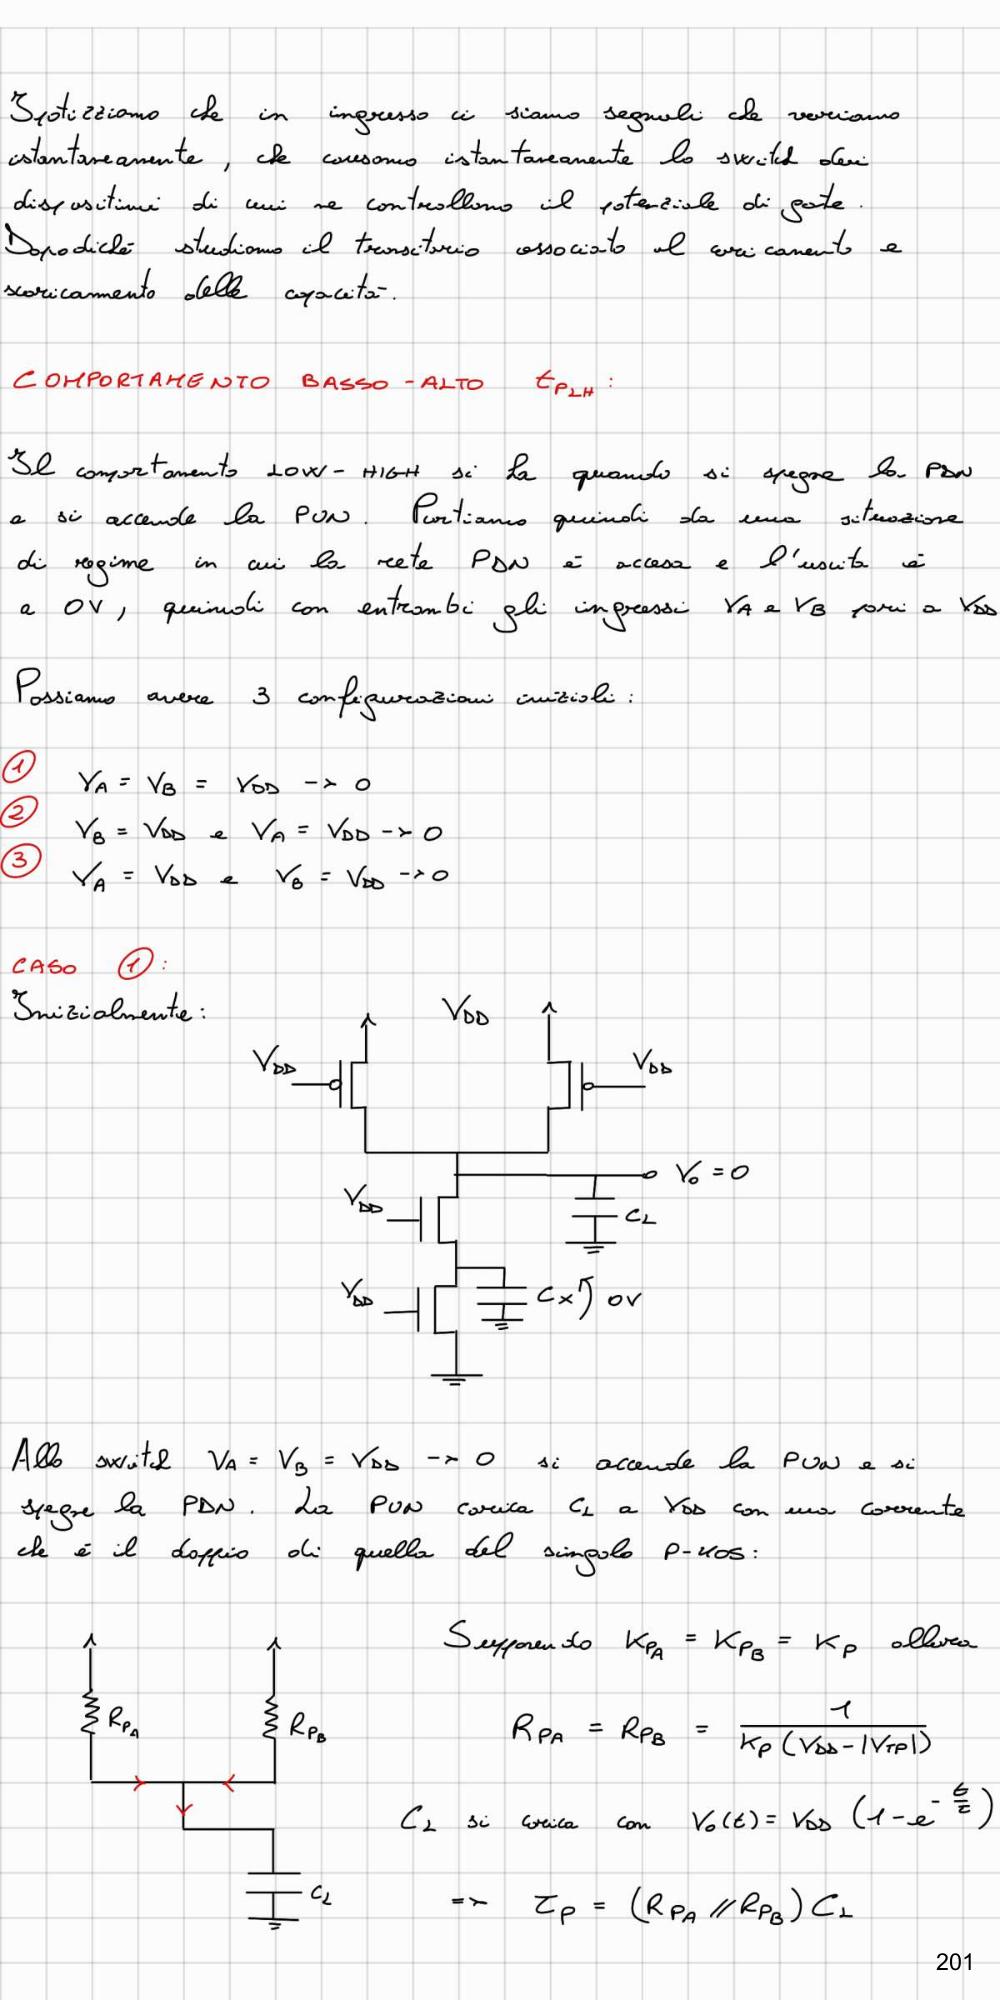 Ipotizziamo che in ingresso ci siano segnali che variano
istantaneamente, che causano istantaneamente lo switch dei
dispositivi di cui ne controllano il potenziale di gate.
Dopodiché studiamo il transitorio associato al caricamento e
scaricamento delle capacità.
COMPORTAMENTO BASSO-ALTO tPLH:
Il comportamento LOW-HIGH si ha quando si spegne la PDN
e si accende la PUN. Partiamo quindi da una situazione
di regime in cui la rete PDN è accesa e l'uscita è
a 0V, quindi con entrambi gli ingressi VA e VB pari a VDD
Possiamo avere 3 configurazioni iniziali:
① VA = VB = VDD -> 0
② VB = VDD e VA = VDD -> 0
③ VA = VDD e VB = VDD -> 0
CASO ①:
Inizialmente:
VDD
VDD
VDD
V0 = 0
VDD
CL
VDD
Cx 0V
Allo switch VA = VB = VDD -> 0 si accende la PUN e si
spegne la PDN. La PUN carica CL a VDD con una corrente
che è il doppio di quella del singolo P-MOS:
Supponendo KPA = KPB = KP allora
RPA
RPB
RPA = RPB = 1 / KP (VDD - |VTP|)
CL si carica con V0(t) = VDD (1 - e^-t/τ)
CL
=> τP = (RPA // RPB) CL
201